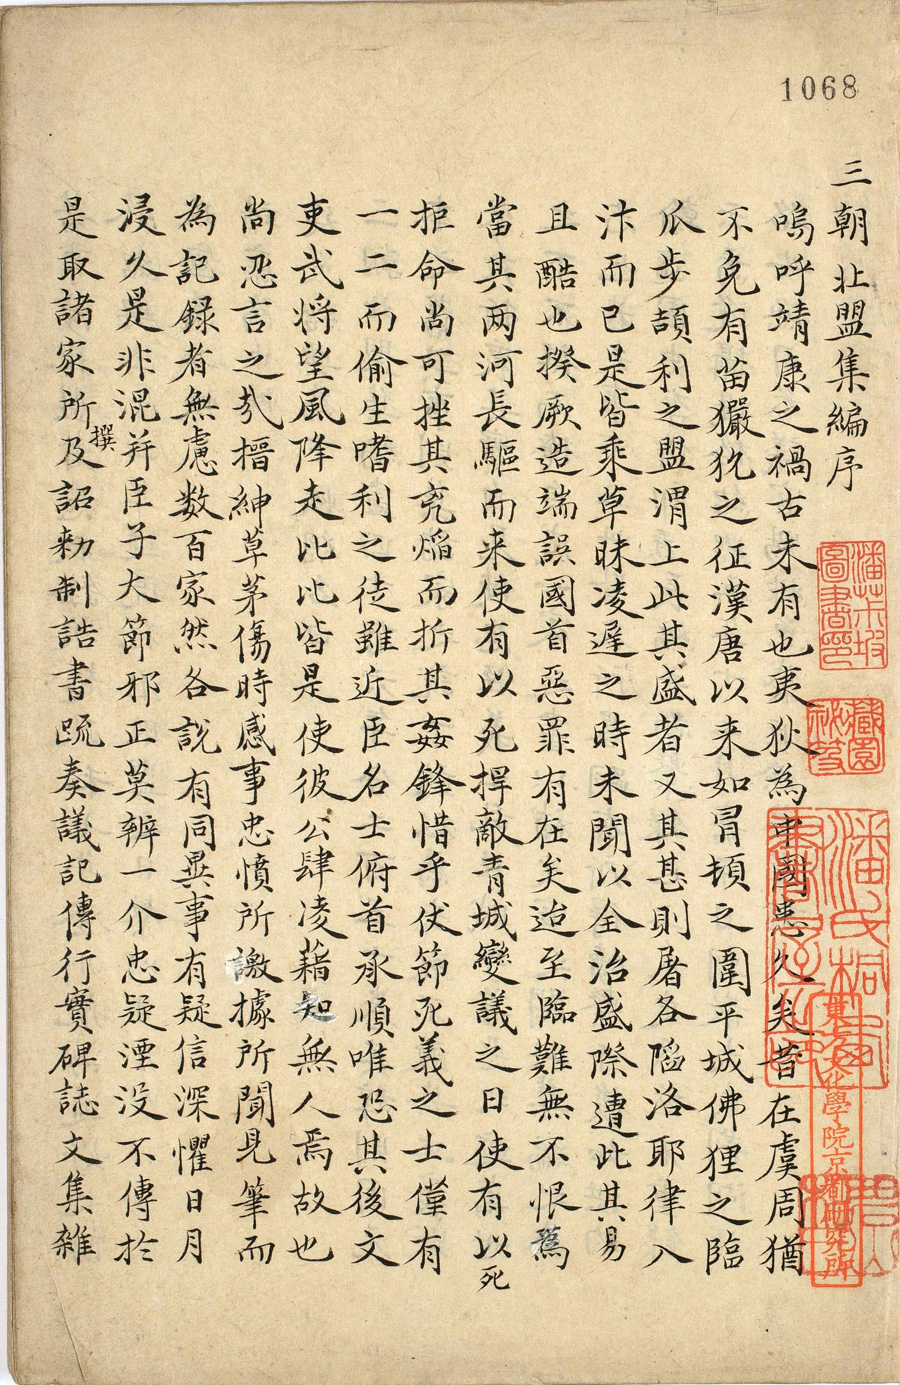 1068
三朝北盟集編序
嗚呼靖康之禍古未有也夷狄為中國患久矣昔在虞周猶
不免有苗玁狁之征漢唐以来如冒頓之圍平城佛狸之臨
瓜步頡利之盟渭上此其盛者又其甚則屠各陷洛耶律入
汴而已是皆乘草昧凌遲之時未聞以全治盛際遭此其易
且酷也揆厥造端誤國首惡罪有在矣迨至臨難無不恨焉
當其两河長驅而来使有以死捍敵青城變議之日使有以死
拒命尚可挫其兖焰而折其姦鋒惜乎伏節死義之士僅有
一二而偷生嗜利之徒雖近臣名士俯首承順唯恐其後文
吏武将望風降走比比皆是使彼公肆凌藉知無人焉故也
尚忍言之㢤搢紳草茅傷時感事忠憤所激據所聞見筆而
為記録者無慮数百家然各說有同異事有疑信深懼日月
浸久是非混并臣子大節邪正莫辨一介忠疑湮没不傳於
是取諸家所撰及詔勑制誥書疏奏議記傳行實碑誌文集雜
潘茮坡
圖書印
藏園
祕笈
潘氏桐
東方文化學院京都研究所